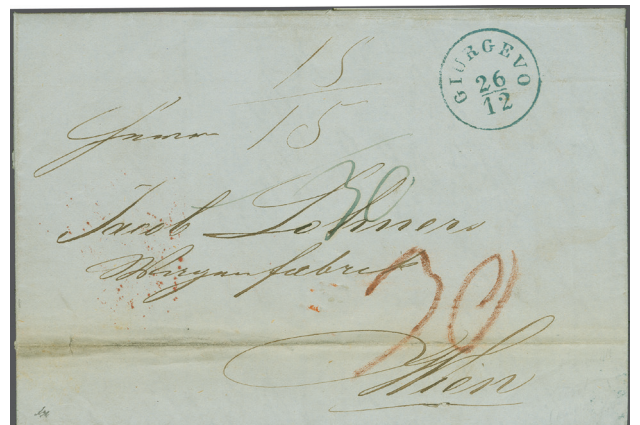 GIURGEVO
26
12
15
15
Herrn
30
Jacob Lohner
Wagenfabrik
30
Wien